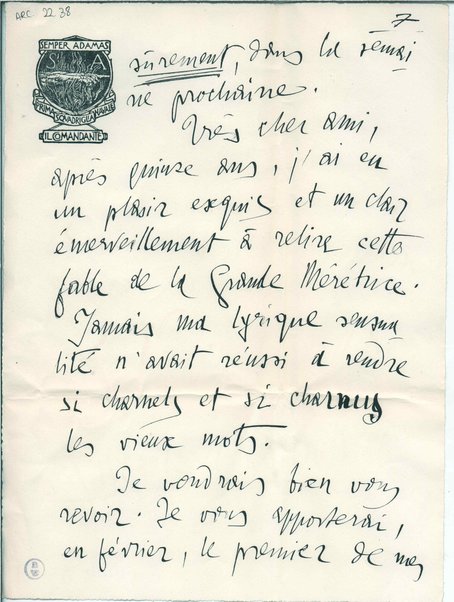 ARC. 22.38
7
SEMPER ADAMAS
S A
PRIMA SQUADRIGLIA NAVALE
IL COMANDANTE
sûrement, dans la semai
ne prochaine.
Très cher ami,
après quinze ans, j'ai eu
un plaisir exquis et un clair
émerveillement à relire cette
fable de la Grande Mérétrice.
Jamais ma lyrique sensua
lité n'avait réussi à rendre
si charnels et si charnus
les vieux mots.
Je voudrais bien vous
revoir. Je vous apporterai,
en février, le premier de mes